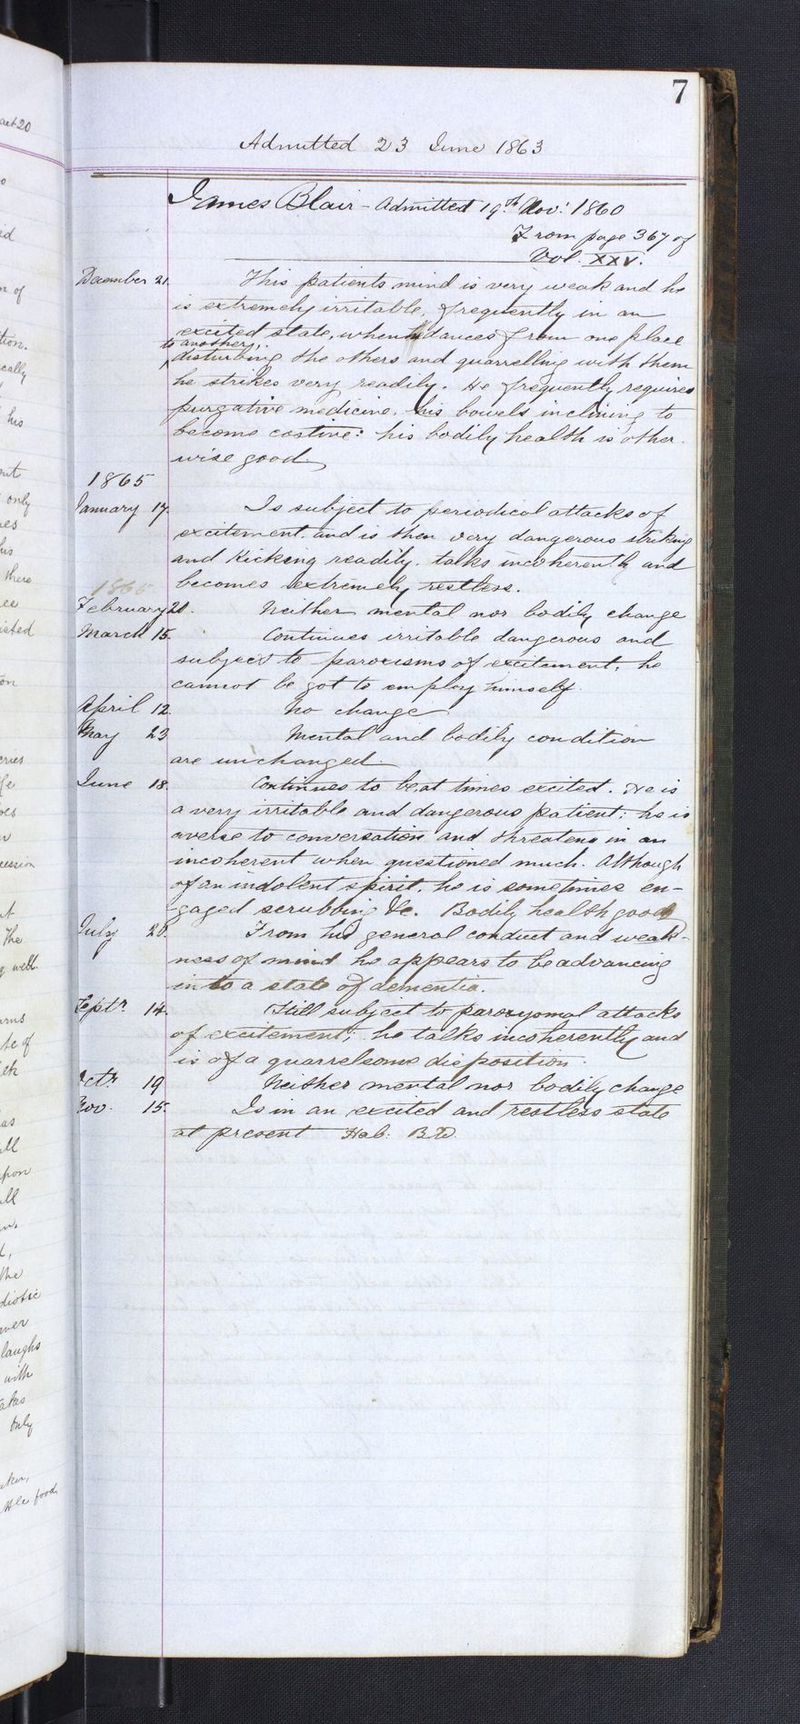 7
Admitted 23 June 1863
James Blair - Admitted 19th Nov: 1860
From page 367 of
Vol. XXV.
December 21. This patients mind is very weak and he
is extremely irritable, frequently in an
excited state, when he dances from one place
to another,
disturbing the others and quarrelling with them
he strikes very readily. He frequently requires
purgative medicine, his bowels inclining to
become costive: his bodily health is other-
wise good
1865
January 17. Is subject to periodical attacks of
excitement, and is then very dangerous striking
and Kicking readily, talks incoherently and
becomes extremely restless.
1865
February 21. Neither mental nor bodily change
March 15. Continues irritable dangerous and
subject to paroxisms of excitement, he
cannot be got to employ himself.
April 12. No change
May 23 Mental and bodily condition
are unchanged
June 18. Continues to be at times excited. He is
a very irritable and dangerous patient: he is
averse to conversation and threatens in an
incoherent when questioned much. Although
of an indolent spirit, he is sometimes en-
gaged scrubbing &c. Bodily health good
July 20. From his general conduct and weak-
ness of mind he appears to be advancing
into a state of dementia.
Septr. 14. Still subject to paroxysmal attacks
of excitement; he talks incoherently and
is of a quarrelsome disposition.
Octr. 19 Neither mental nor bodily change
Nov. 15. Is in an excited and restless state
at present Hab: B.D.